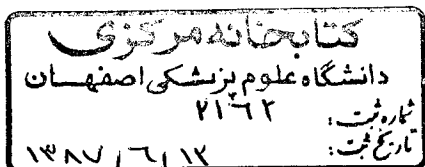 کتابخانه مرکزی
دانشگاه علوم پزشکی اصفهان
شماره ثبت: ۲۱۶۲
تاریخ ثبت: ۱۳۸۷/۶/۱۲